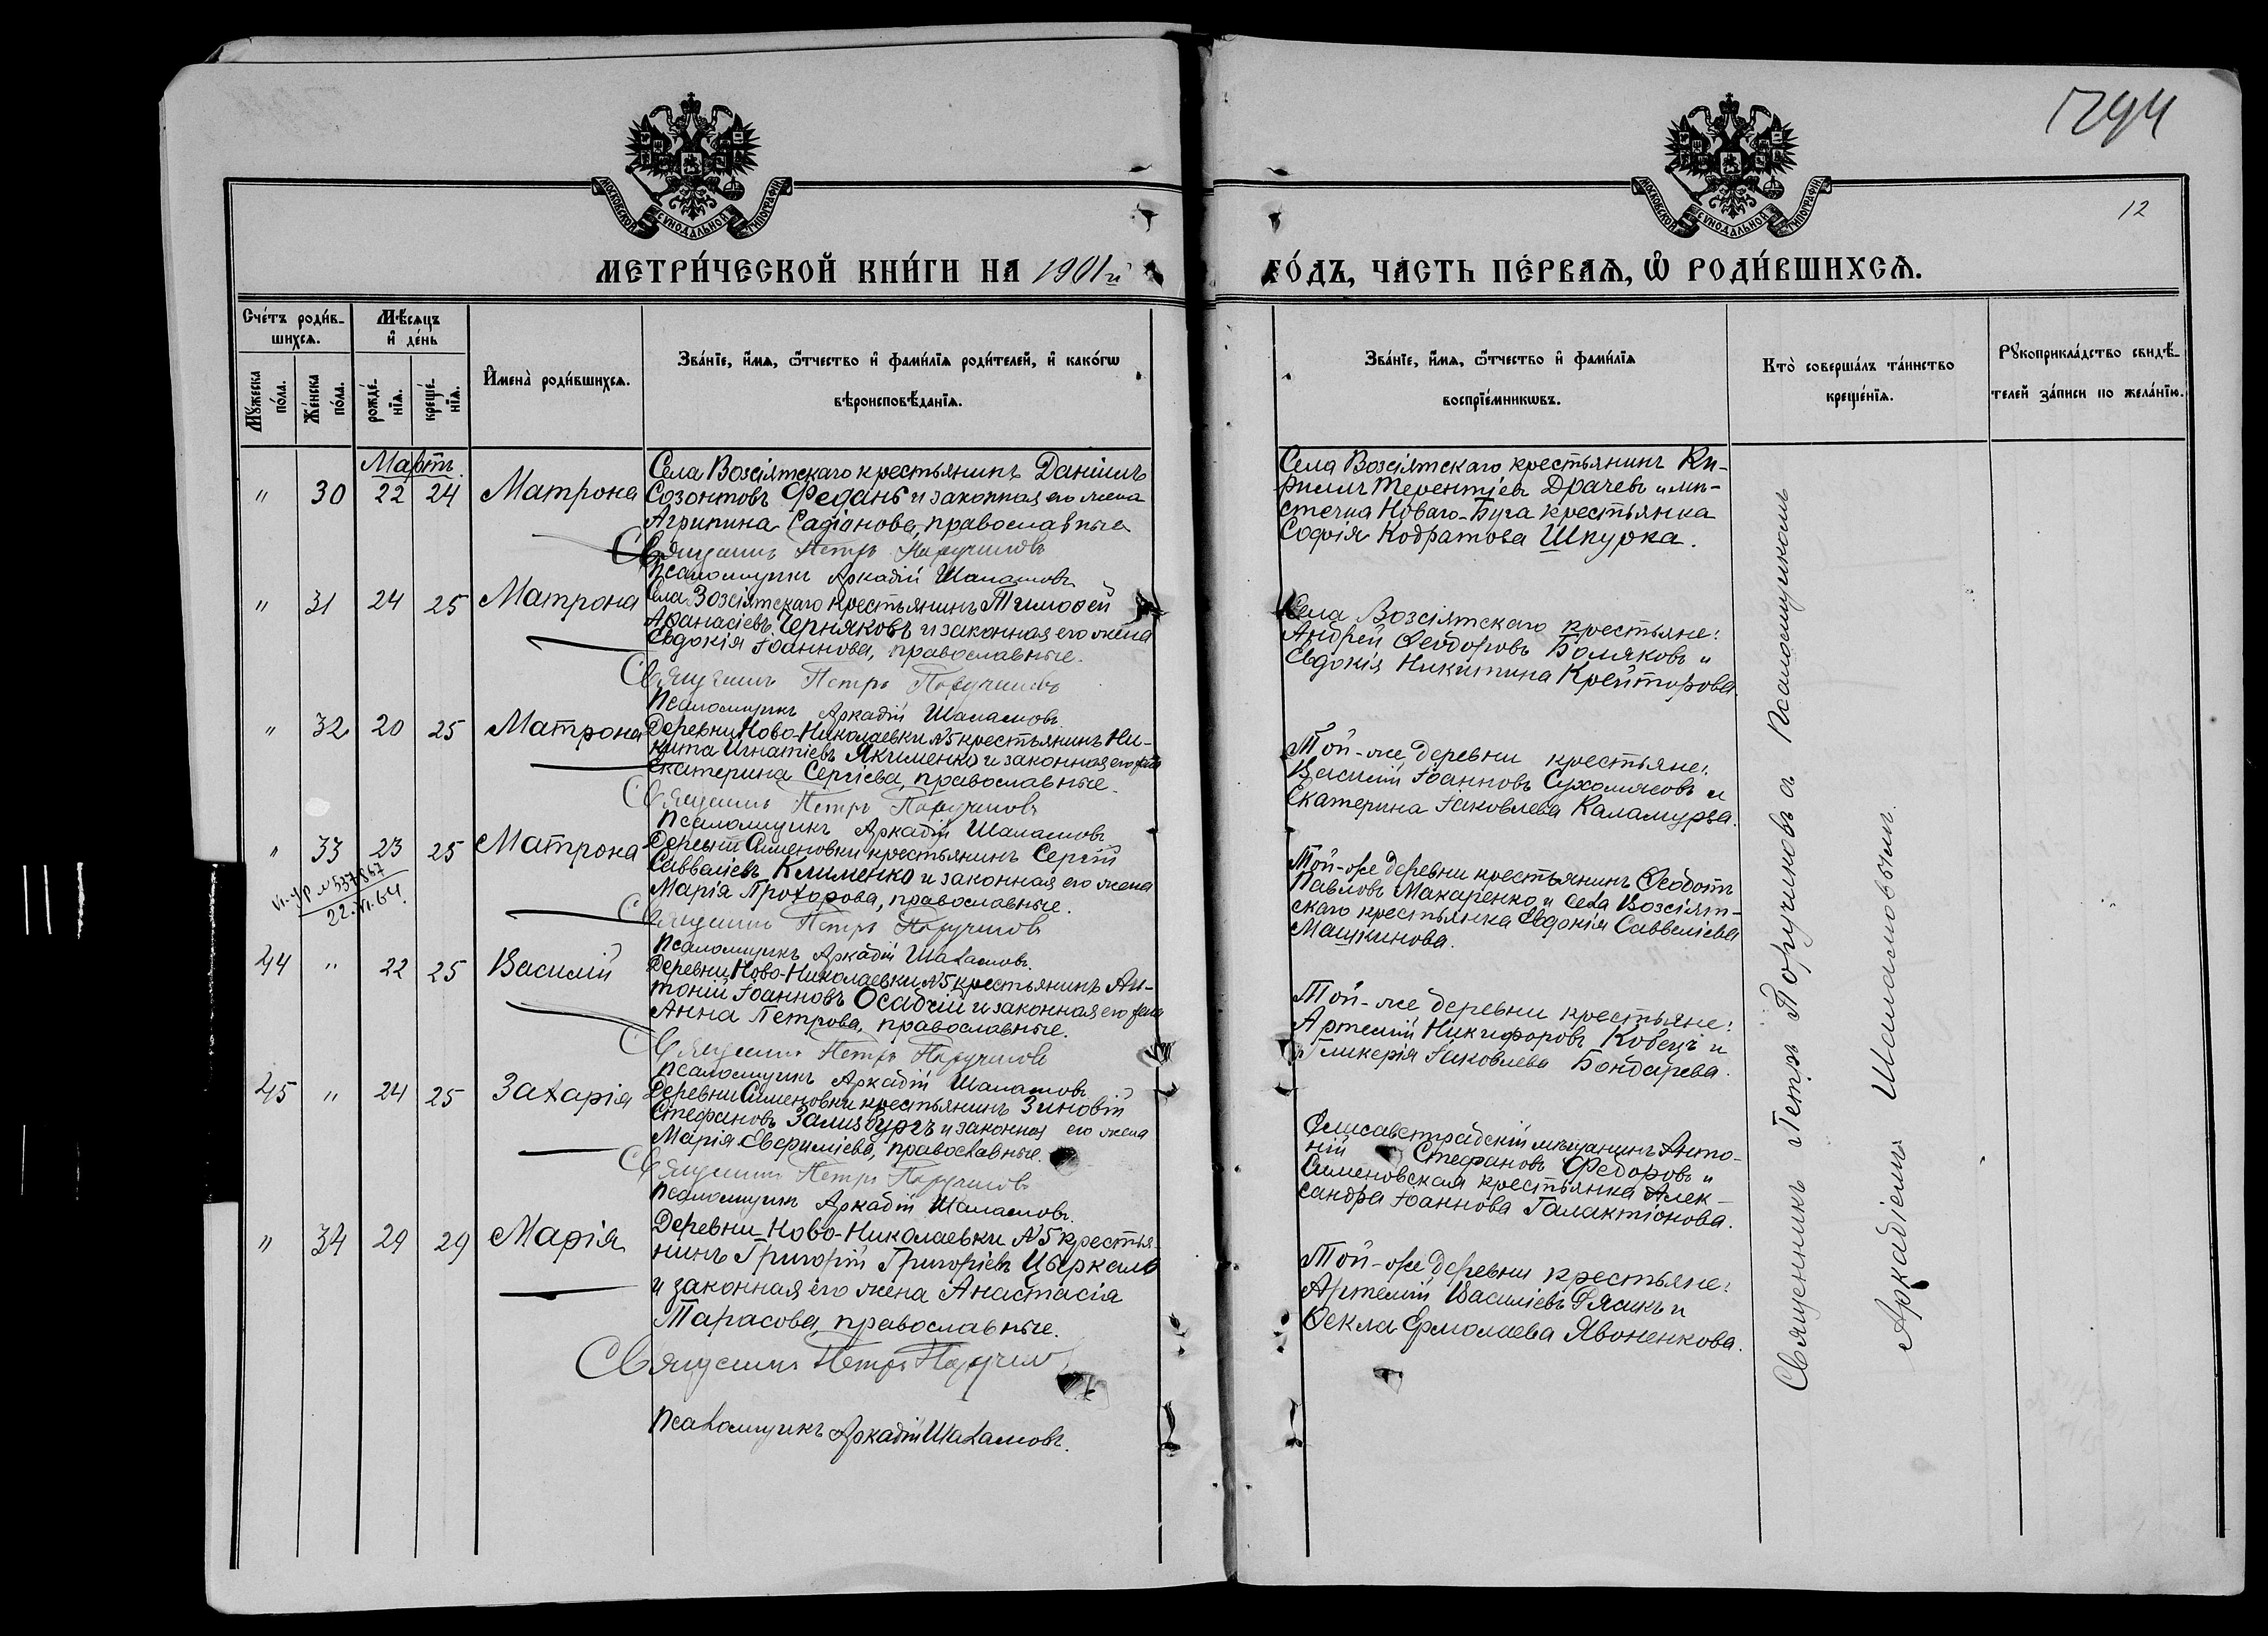 1294
12
МОСКОВСКОЙ СѴНОДАЛЬНОЙ ТИПОГРАФІИ
МОСКОВСКОЙ СѴНОДАЛЬНОЙ ТИПОГРАФІИ
МЕТРИ́ЧЕСКОЙ КНИ́ГИ НА 1901й
ГО́ДЪ, ЧА́СТЬ ПЕ́РВАѦ, Ѽ РОДИ́ВШИХСѦ.
Сче́тъ роди́в-
шихсѧ.
Мѣ́сѧцъ
и҆ де́нь
Мꙋ́жеска по́ла.
Же́нска по́ла.
рожде́-нїѧ.
креще́-нїѧ.
И҆мена̀ роди́вшихсѧ.
Зва́нїе, и҆́мѧ, ѻ҆́тчество и҆ фами́лїѧ роди́телей, и҆ како́гѡ
вѣроисповѣ́данїѧ.
Зва́нїе, и҆́мѧ, ѻ҆́тчество и҆ фами́лїѧ
воспрїе́мникѡвъ.
Кто̀ соверша́лъ та́инство
креще́нїѧ.
Рꙋкоприкла́дство свидѣ́-
телей за́писи по жела́нїю.
Мартъ.
" 30 22 24 Матрона
Села Возсіятскаго крестьянинъ Даніилъ
Созонтовъ Федань и законная его жена
Агрипина Радіонова, православные
Священникъ Петръ Поручиковъ
Псаломщикъ Аркадій Шаламовъ
Села Возсіятскаго крестьянинъ Ки-
риллъ Терентіевъ Драчевъ и мѣ-
стечка Новаго-Буга крестьянка
Софія Кодратова Шкурка.
" 31 24 25 Матрона
Села Возсіятскаго крестьянинъ Тимоѳей
Аѳанасіевъ Черняковъ и законная его жена
Евдокія Іоаннова, православные.
Священникъ Петръ Поручиковъ
Псаломщикъ Аркадій Шаламовъ.
Села Возсіятскаго крестьяне:
Андрей Ѳеодоровъ Боляковъ и
Евдокія Никитина Крейторова.
" 32 20 25 Матрона
Деревни Ново-Николаевки №5 крестьянинъ Ни-
кита Игнатіевъ Якименко и законная его жена
Екатерина Сергіева, православные.
Священникъ Петръ Поручиковъ
Псаломщикъ Аркадій Шаламовъ
Той-же деревни крестьяне:
Василій Іоанновъ Сухомлиновъ и
Екатерина Іаковлева Каламурза.
" 33 23 25 Матрона
22.VI.64
Деревни Семеновки крестьянинъ Сергій
Савваліевъ Клименко и законная его жена
Марія Прохорова, православные.
Священникъ Петръ Поручиковъ
Псаломщикъ Аркадій Шаламовъ.
Той-же деревни крестьянинъ Ѳеодотъ
Павловъ Макаренко и села Возсіят-
скаго крестьянка Евдокія Саввеліева
Машкинова.
44 " 22 25 Василій
Деревни Ново-Николаевки №5 крестьянинъ Ан-
тоній Іоанновъ Осадчій и законная его жена
Анна Петрова, православные.
Священникъ Петръ Поручиковъ
Псаломщикъ Аркадій Шаламовъ
Той-же деревни крестьяне:
Артемій Никифоровъ Кобецъ и
Гликерія Іаковлева Бондарева.
45 " 24 25 Захарія
Деревни Семеновки крестьянинъ Зиновій
Стефановъ и законная его жена
Марія Евфиміева, православные.
Священникъ Петръ Поручиковъ
Псаломщикъ Аркадій Шаламовъ.
Елисаветградскій мѣщанинъ Анто-
ній Стефановъ Федоровъ и
Семеновская крестьянка Алек-
сандра Іоаннова Галактіонова.
" 34 29 29 Марія
Деревни Ново-Николаевки №5 крестья-
нинъ Григорій Григоріевъ Цыркало
и законная его жена Анастасія
Тарасова, православные.
Священникъ Петръ Поручиковъ
Псаломщикъ Аркадій Шаламовъ.
Той-же деревни крестьяне:
Артемій Василіевъ и
Ѳекла Ермолаева Явоненкова.
Священникъ Петръ Поручиковъ съ Псаломщикомъ
Аркадіемъ Шаламовымъ.